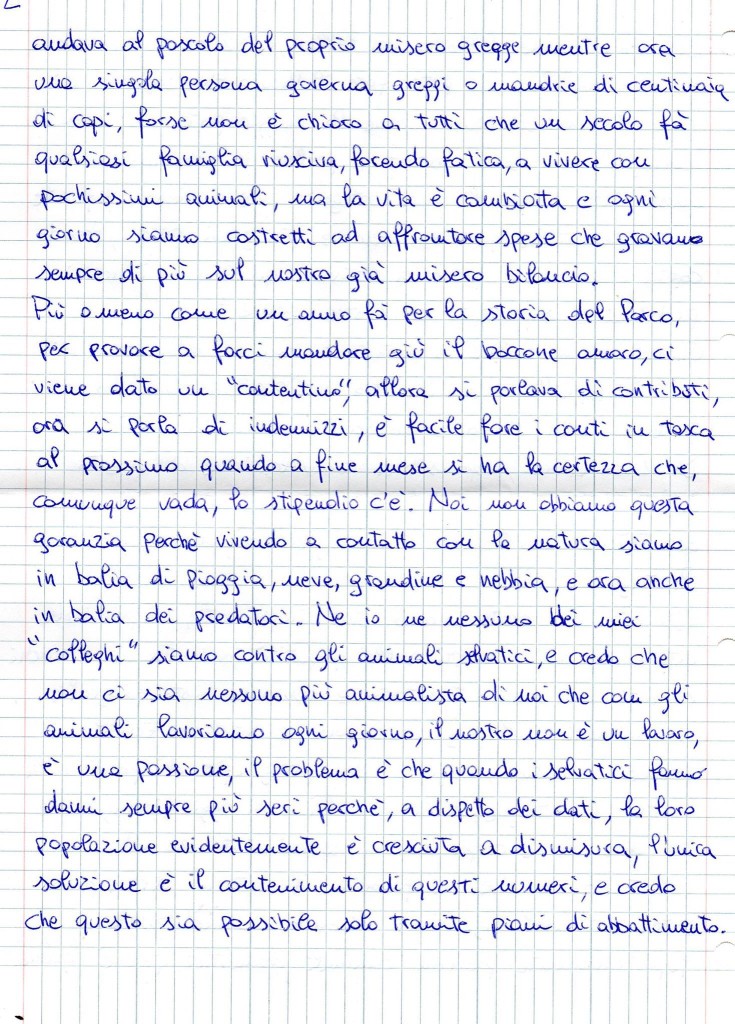 2
andava al pascolo del proprio misero gregge mentre ora
una singola persona governa greggi o mandrie di centinaia
di capi, forse non è chiaro a tutti che un secolo fà
qualsiasi famiglia riusciva, facendo fatica, a vivere con
pochissimi animali, ma la vita è cambiata e ogni
giorno siamo costretti ad affrontare spese che gravano
sempre di più sul nostro già misero bilancio.
Più o meno come un anno fà per la storia del Parco,
per provare a farci mandare giù il boccone amaro, ci
viene dato un "contentino", allora si parlava di contributi,
ora si parla di indennizzi, è facile fare i conti in tasca
al prossimo quando a fine mese si ha la certezza che,
comunque vada, lo stipendio c'è. Noi non abbiamo questa
garanzia perchè vivendo a contatto con la natura siamo
in balia di pioggia, neve, grandine e nebbia, e ora anche
in balia dei predatori. Ne io ne nessuno dei miei
"colleghi" siamo contro gli animali selvatici, e credo che
non ci sia nessuno più animalista di noi che con gli
animali lavoriamo ogni giorno, il nostro non è un lavoro,
è una passione, il problema è che quando i selvatici fanno
danni sempre più seri perchè, a dispetto dei dati, la loro
popolazione evidentemente è cresciuta a dismisura, l'unica
soluzione è il contenimento di questi numeri, e credo
che questo sia possibile solo tramite piani di abbattimento.